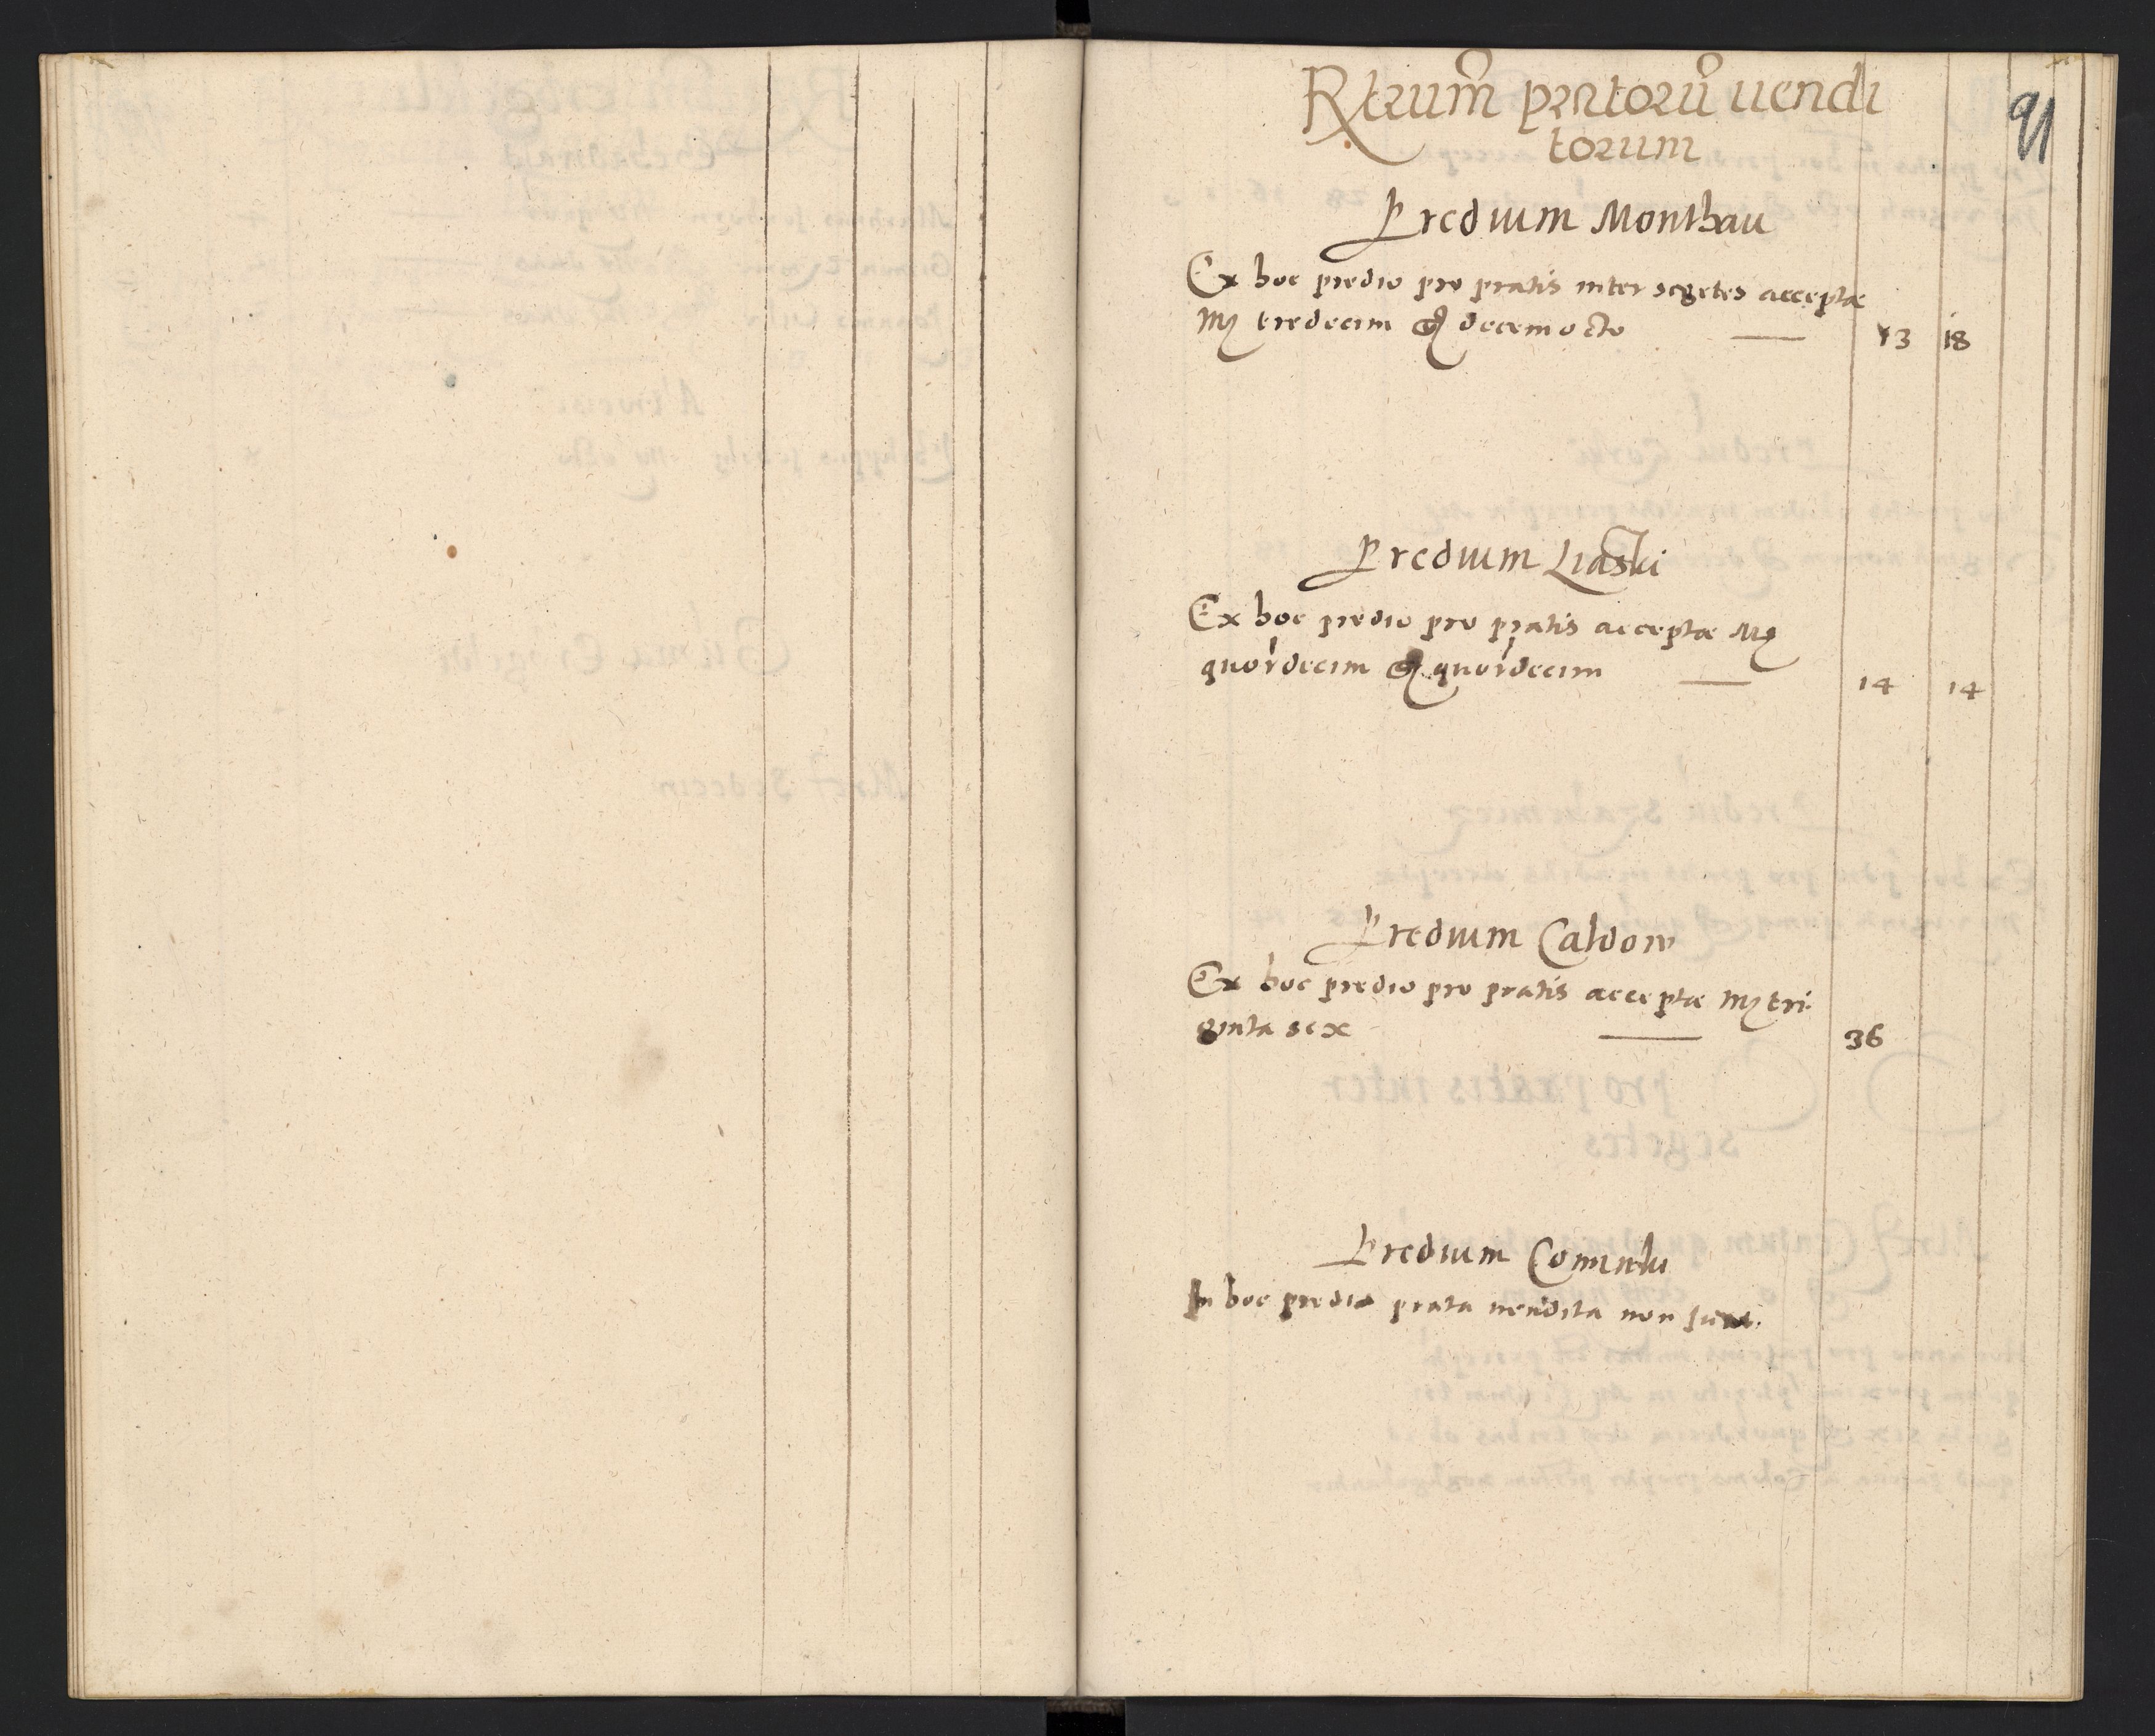 Rtrum̃ pratorũ uendi
torum
91
Predium Monthau
Ex hoc predio pro pratis inter segetes acceptæ
Mr tredecim gr decemocto — 13 18
Predium Liaski
Ex hoc predio pro pratis acceptæ Mr
quordecim gr quordecim — 14 14
Predium Caldow
Ex hoc predio pro pratis acceptæ Mr tri
ginta sex — 36
Predium
In hoc predio prata uendita non sunt.